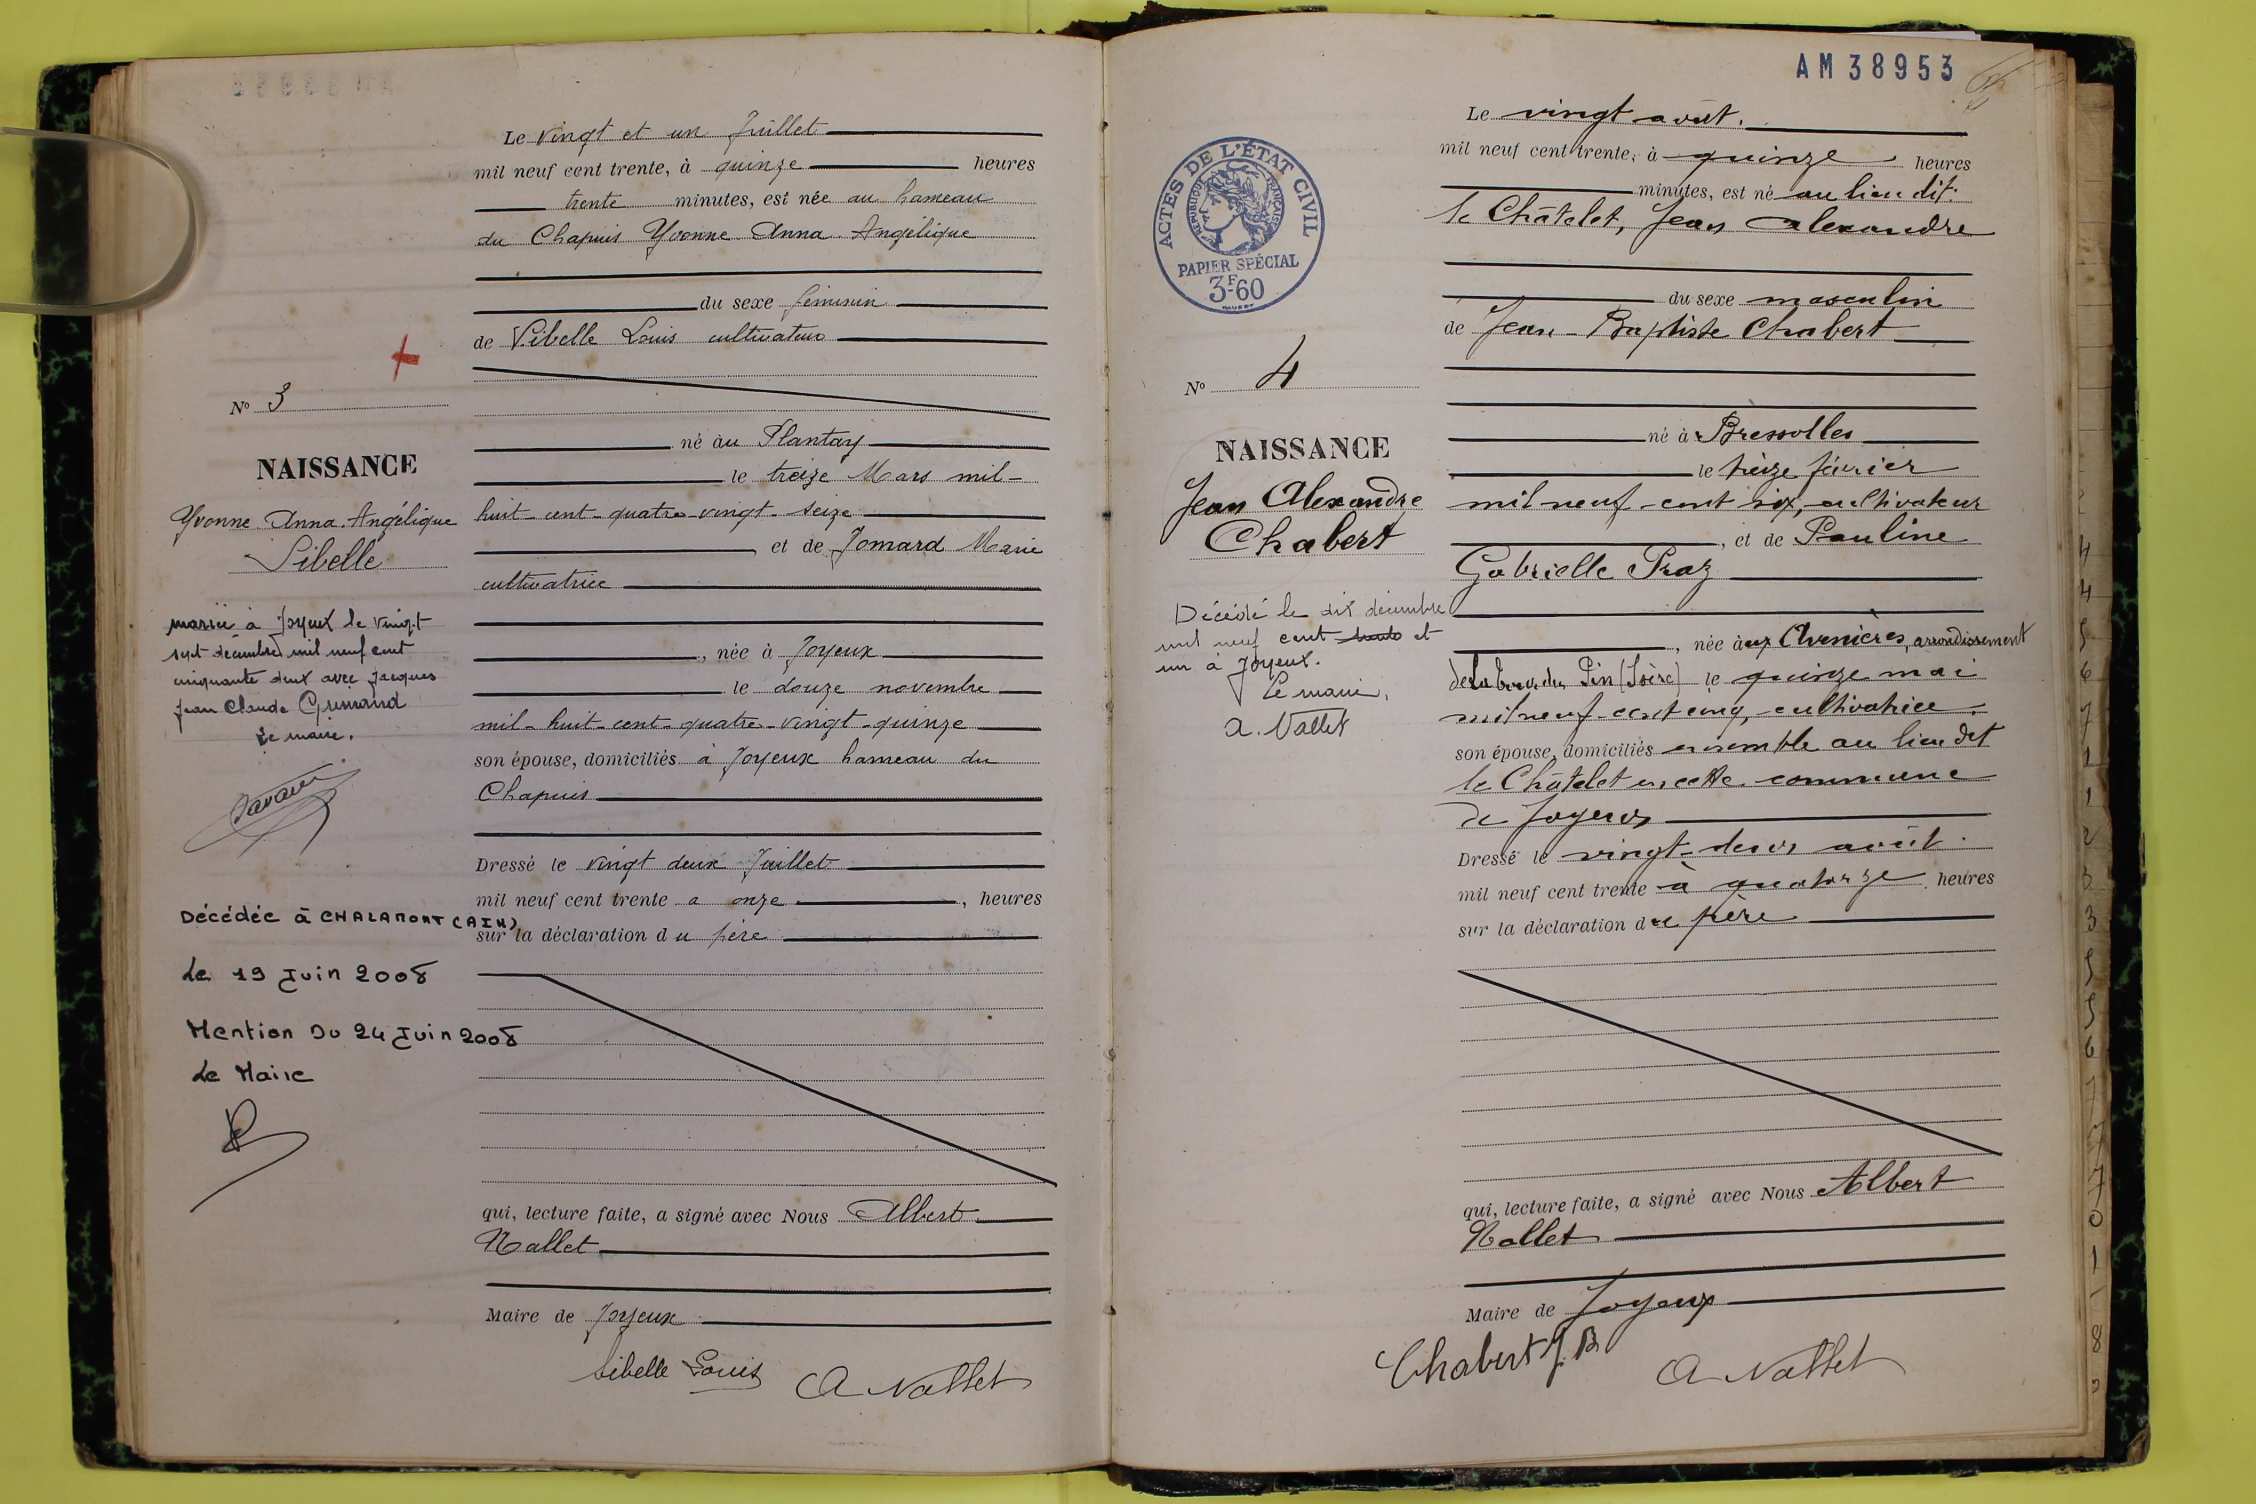 Le vingt et un Juillet
mil neuf cent trente, à quinze heures
trente minutes, est née au hameau
du Chapuis Yvonne Anna Angélique
du sexe féminin
de Sibelle Louis cultivateur
N° 3
né au Plantay
NAISSANCE
le treize Mars mil-
Yvonne Anna Angélique
huit-cent-quatre-vingt-seize
Sibelle
et de Jomard Marie
cultivatrice
mariée à Joyeux le vingt
sept décembre mil neuf cent
cinquante deux avec Jacques
Jean Claude
Le maire.
née à Joyeux
le douze novembre
mil-huit-cent-quatre-vingt-quinze
son épouse, domiciliés à Joyeux hameau du
Chapuis
Dressé le vingt deux Juillet
mil neuf cent trente a onze, heures
sur la déclaration du père
Décédée à CHALAMONT (AIN)
Le 19 Juin 2008
Mention Du 24 Juin 2008
Le Maire
qui, lecture faite, a signé avec Nous Albert
Nallet
Maire de Joyeux
Sibelle Louis
A Nallet
AM 38953
Le vingt août.
mil neuf cent trente, à quinze heures
minutes, est né au lieu dit.
le Châtelet, Jean Alexandre
ACTES DE L'ÉTAT CIVIL
RÉPUBLIQUE FRANÇAISE
PAPIER SPÉCIAL
3F60
du sexe masculin
de Jean-Baptiste Chabert
N° 4
né à Bressolles
NAISSANCE
le treize février
Jean Alexandre
mil neuf-cent six, cultivateur
Chabert
, et de Pauline
Gabrielle Praz
Décédé le dix décembre
mil neuf cent trente et
un à Joyeux.
Le maire,
A. Nallet
, née aux Avenières, arrondissement
de La Tour du Pin (Isère) le quinze mai
mil neuf-cent cinq, cultivatrice.
son épouse, domiciliés ensemble au lieu dit
le Châtelet en cette commune
de Joyeux
Dressé le vingt-deux août.
mil neuf cent trente à quatorze heures
sur la déclaration du père
qui, lecture faite, a signé avec Nous Albert
Nallet
Maire de Joyeux
Chabert J. B
A Nallet